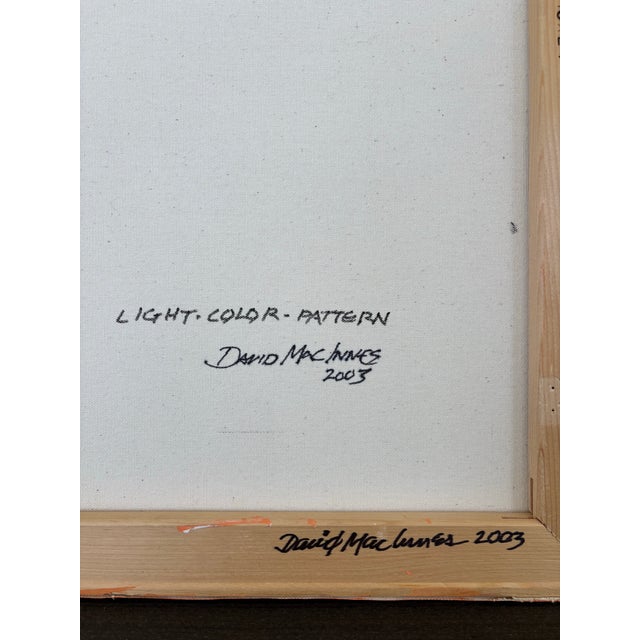 LIGHT. COLOR - PATTERN
DAVID MACINNES
2003
David MacInnes 2003